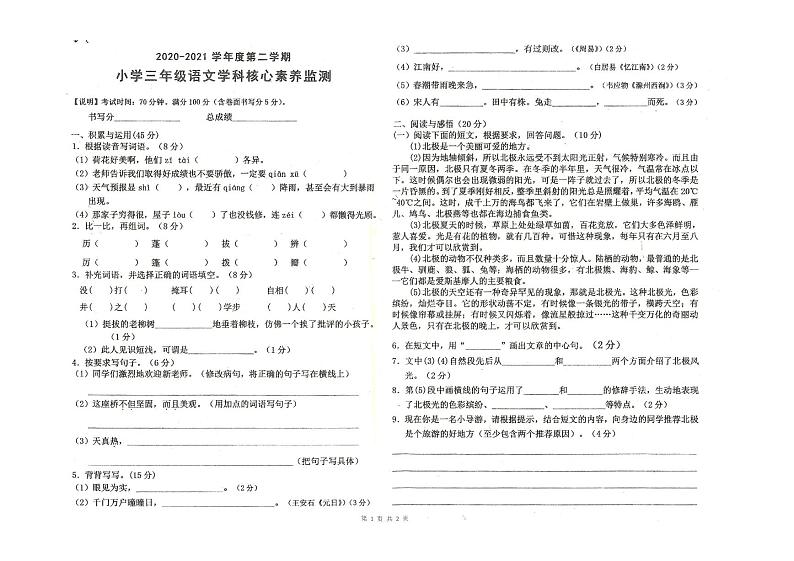 2020-2021 学年度第二学期
小学三年级语文学科核心素养监测
【说明】考试时间：70分钟。满分100分（含卷面书写5分）。
书写分__________ 总成绩__________
一、积累与运用(45分)
1．根据读音写词语。（8分）
（1）荷花好美啊，他们zī tài（　　）各异。
（2）老师告诉我们取得好成绩也不要骄傲，一定要qiān xū（　　）
（3）天气预报显shì（　　），最近有qiáng（　　）降雨，甚至会有大到暴雨
出现。
（4）那家子穷得很，屋子lòu（　　）了也没钱修，连zéi（　　）都懒得光顾。
2．比一比，再组词。（8分）
历（　　） 蓬（　　） 拔（　　） 辨（　　）
厉（　　） 篷（　　） 拨（　　） 辫（　　）
3．补充词语，并选择正确的词语填空。（8分）
没（　）打（　） 掩耳（　）（　） 自相（　）（　）
井（　）之（　） （　）（　）学步 （　）人（　）天
（1）挺拔的老柳树__________地垂着柳枝，仿佛一个挨了批评的小孩子。
（1分）
（2）此人见识短浅，可谓是__________。（1分）
4．按要求写句子。（6分）
（1）同学们激烈地欢迎新老师。（修改病句，将正确的句子写在横线上）
（2）这座桥不但坚固，而且美观。（用加点的词语写句子）
（3）天真热，
（把句子写具体）
5．背背写写。(15分)
（1）眼见为实，__________。（2分）
（2）千门万户曈曈日，__________。（王安石《元日》）（3分）
（3）__________，有过则改。（《周易》）（3分）
（4）江南好，__________。（白居易《忆江南》）（2分）
（5）春潮带雨晚来急，__________。（韦应物《滁州西涧》）（3分）
（6）宋人有__________。田中有株。兔走__________，__________而死。（3分）
二、阅读与感悟（20分）
（一）阅读下面的短文，根据要求，回答问题。（10分）
(1)北极是一个美丽可爱的地方。
(2)因为地轴倾斜，所以北极永远受不到太阳光正射，气候特别寒冷。而且由
于同一原因，北极只有夏冬两季。在冬季的半年里，天气很冷，气温常在冰点以
下。这时候偶尔也会出现微弱的阳光，可是一阵子就过去了，所以北极的冬季是
一片昏黑的，到了夏季刚好相反，整季里斜射的阳光总是照耀着，平均气温在20℃
~40℃之间。这时，成千上万的海鸟都飞来了，它们在岩壁上做巢，许多海鸥、雁
儿、鸠鸟、北极燕等也都在海边捕食鱼类。
(3)北极夏天的时候，草原上处处绿草如茵，百花竞放，它们大多色泽鲜明，
惹人喜爱。光是有花的植物，就有几百种，可惜这种现象，每年只有在六月至八
月，我们才可以欣赏到。
(4)北极的动物不仅种类多，而且数量十分惊人。陆栖的动物，最普通的是北
极牛、驯鹿、狼、狐、兔等；海栖的动物很多，有北极熊、海豹、鲸、海象等—
—它们都是爱斯基摩人的主要粮食。
(5)北极的天空还有一种奇异罕见的现象，那就是北极光。这种北极光，色彩
缤纷，灿烂夺目。它的形状也不固定，有时候像一条银光的带子，横跨天空；有
时候像帘幕或挂屏；有时候又闪烁着，像流星般掠过……这种千变万化的奇丽动
人景色，只有在北极的晚上，才可以欣赏到。
6．在短文中，用“______”画出文章的中心句。（2分）
7．文中(3)(4)自然段先后从__________和__________两个方面介绍了北极风
光。（2分）
8．第(5)段中画横线的句子运用了________和________的修辞手法，生动地表现
了北极光的色彩缤纷、__________、__________等特点。（2分）
9．现在你是一名小导游，请根据提示，结合短文的内容，向身边的同学推荐北极
是个旅游的好地方（至少包含两个推荐原因）。（4分）
第 1 页 共 2 页